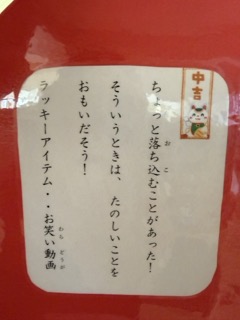 中吉
ちょっと落ち込むことがあった！
そういうときは、たのしいことを
おもいだそう！
ラッキーアイテム・・お笑い動画